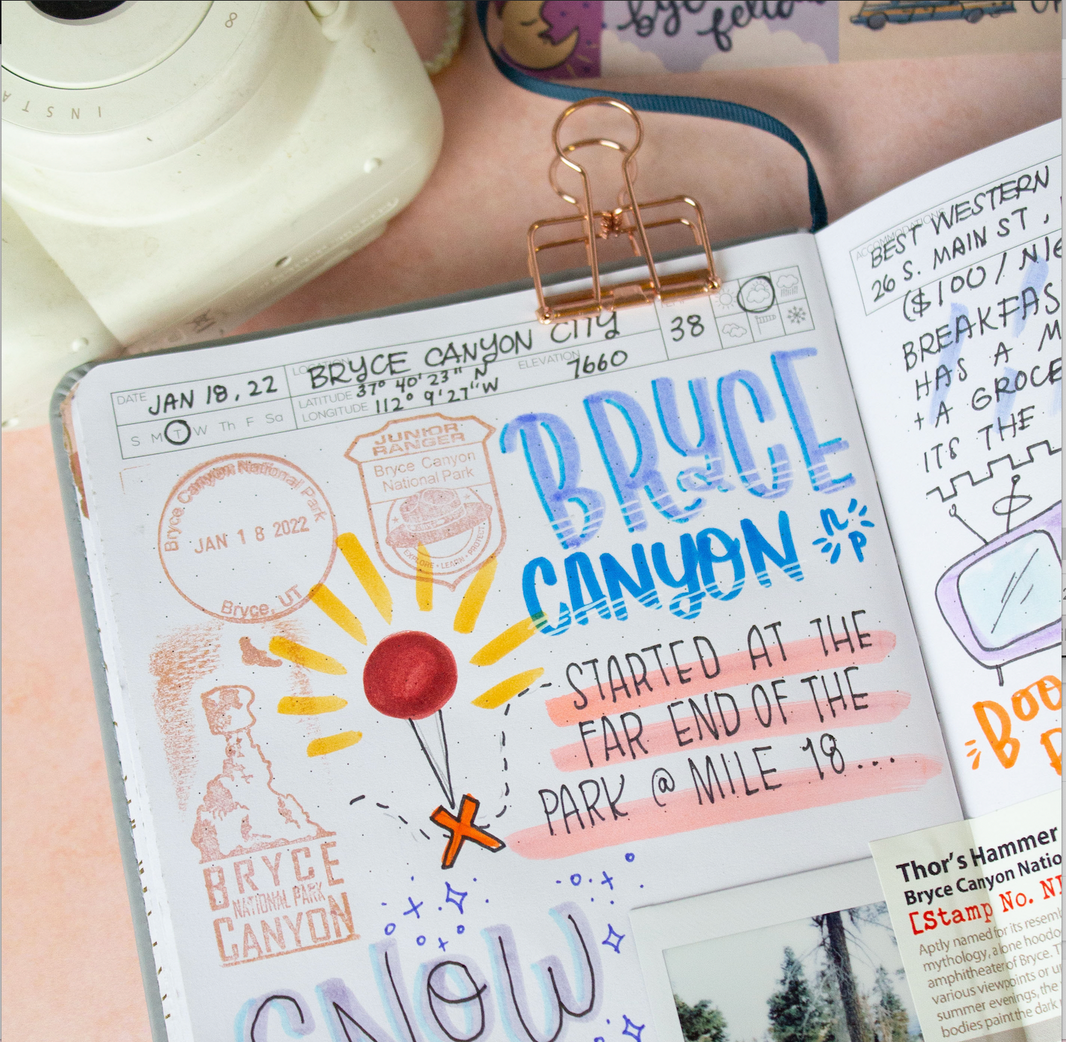 8
INST
bye felic
DATE
JAN 18, 22
LOCATION
BRYCE CANYON CITY
38
S M T W Th F Sa
LATITUDE 37° 40' 23" N
LONGITUDE 112° 9' 27" W
ELEVATION
7660
Bryce Canyon National Park
JAN 18 2022
Bryce, UT
JUNIOR
RANGER
Bryce Canyon
National Park
EXPLORE • LEARN • PROTECT
BRYCE
CANYON
NP
STARTED AT THE
FAR END OF THE
PARK @ MILE 18...
BRYCE
NATIONAL PARK
CANYON
SNOW
ACCOMMODATION
BEST WESTERN
26 S. MAIN ST.,
($100/NIG
BREAKFAS
HAS A M
+ A GROCE
ITS THE
BOO
Thor's Hammer
Bryce Canyon Natio
[Stamp No. N
Aptly named for its resemb
mythology, a lone hoodoo
amphitheater of Bryce. T
various viewpoints or u
summer evenings, the
bodies paint the dark